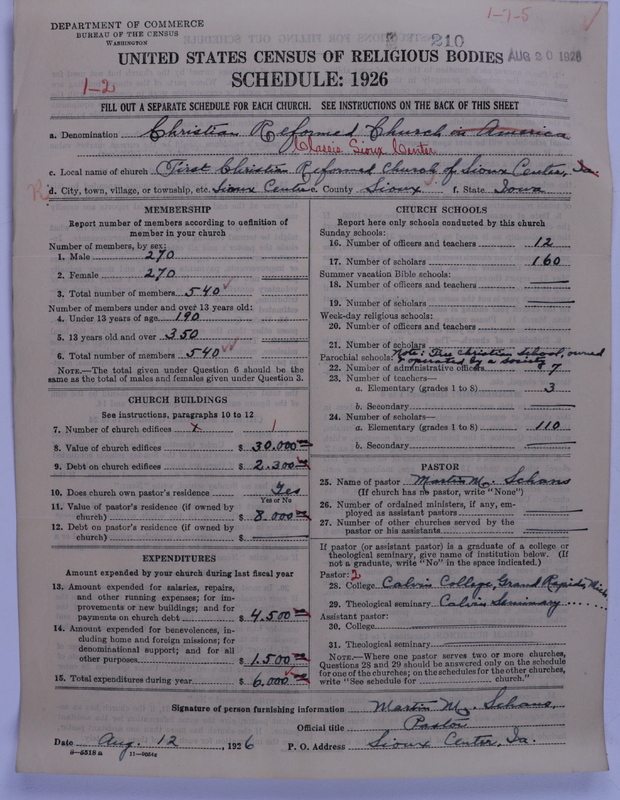 1-7-5
DEPARTMENT OF COMMERCE
BUREAU OF THE CENSUS
WASHINGTON
210
AUG 20 1926
UNITED STATES CENSUS OF RELIGIOUS BODIES
1-2
SCHEDULE: 1926
FILL OUT A SEPARATE SCHEDULE FOR EACH CHURCH. SEE INSTRUCTIONS ON THE BACK OF THIS SHEET
a. Denomination Christian Reformed Church in America
Classis Sioux Center
c. Local name of church First Christian Reformed Church of Sioux Center, Ia.
d. City, town, village, or township, etc. Sioux Center e. County Sioux f. State Iowa
MEMBERSHIP
Report number of members according to definition of
member in your church
Number of members, by sex:
1. Male 270
2. Female 270
3. Total number of members 540
Number of members under and over 13 years old:
4. Under 13 years of age 190
5. 13 years old and over 350
6. Total number of members 540
NOTE.—The total given under Question 6 should be the
same as the total of males and females given under Question 3.
CHURCH BUILDINGS
See instructions, paragraphs 10 to 12
7. Number of church edifices 1
8. Value of church edifices $ 30.000
9. Debt on church edifices $ 2.300
10. Does church own pastor's residence Yes
Yes or No
11. Value of pastor's residence (if owned by
church) $ 8.000
12. Debt on pastor's residence (if owned by
church) $
EXPENDITURES
Amount expended by your church during last fiscal year
13. Amount expended for salaries, repairs,
and other running expenses; for im-
provements or new buildings; and for
payments on church debt $ 4.500
14. Amount expended for benevolences, in-
cluding home and foreign missions; for
denominational support; and for all
other purposes $ 1.500
15. Total expenditures during year $ 6.000
CHURCH SCHOOLS
Report here only schools conducted by this church
Sunday schools:
16. Number of officers and teachers 12
17. Number of scholars 160
Summer vacation Bible schools:
18. Number of officers and teachers
19. Number of scholars
Week-day religious schools:
20. Number of officers and teachers
21. Number of scholars
Parochial schools: Note: Free Christian School, owned
& operated by a society
22. Number of administrative officers 7
23. Number of teachers—
a. Elementary (grades 1 to 8) 3
b. Secondary
24. Number of scholars—
a. Elementary (grades 1 to 8) 110
b. Secondary
PASTOR
25. Name of pastor Martin M. Schans
(If church has no pastor, write "None")
26. Number of ordained ministers, if any, em-
ployed as assistant pastors
27. Number of other churches served by the
pastor or his assistants
If pastor (or assistant pastor) is a graduate of a college or
theological seminary, give name of institution below. (If
not a graduate, write "No" in the space indicated.)
Pastor: 2
28. College Calvin College, Grand Rapids, Mich
29. Theological seminary Calvin Seminary
Assistant pastor:
30. College
31. Theological seminary
NOTE.—Where one pastor serves two or more churches,
Questions 28 and 29 should be answered only on the schedule
for one of the churches; on the schedules for the other churches,
write "See schedule for church."
Signature of person furnishing information Martin M. Schans,
Official title Pastor
Date Aug. 12, 1926 P. O. Address Sioux Center, Ia.